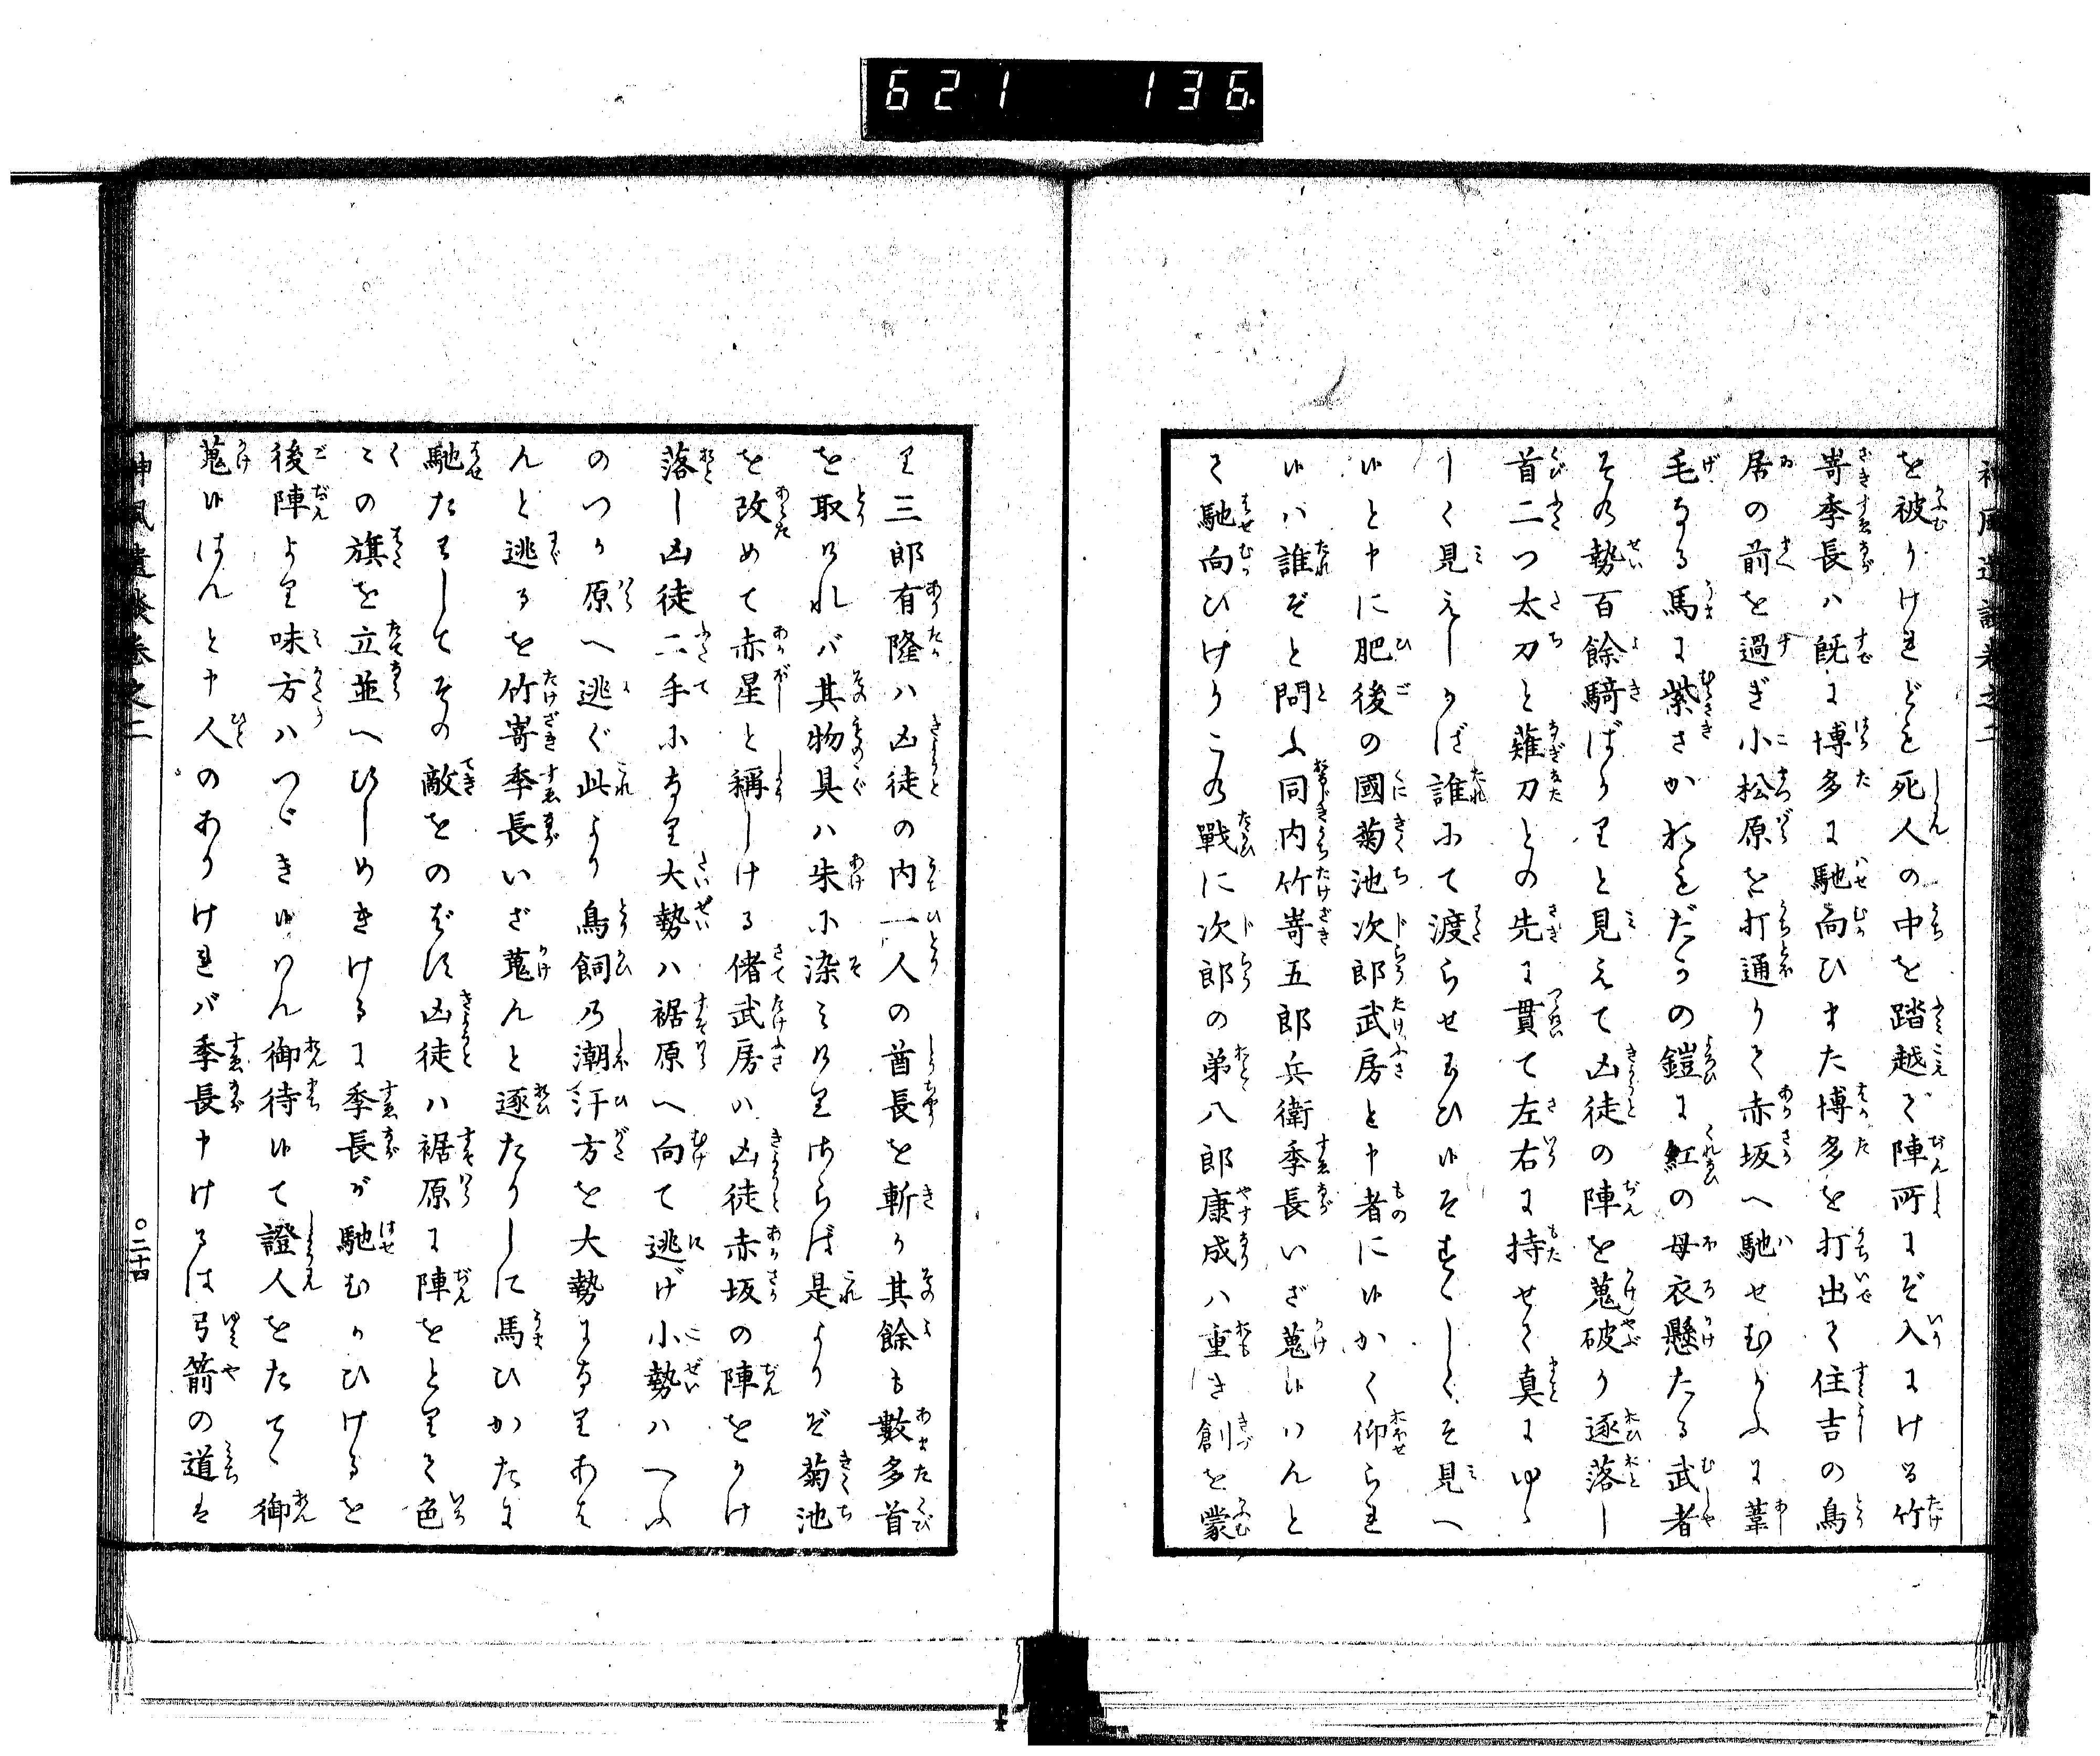 621 136
神風遺談巻之二
を被りけれども死人の中を踏越て陣所にぞ入にける竹
嵜季長ハ既に博多に馳向ひまた博多を打出て住吉の鳥
居の前を過ぎ小松原を打通りて赤坂へ馳せむかふに葦
毛なる馬に紫さかおもだかの鎧に紅の母衣懸たる武者
その勢百餘騎ばかりと見えて凶徒の陣を蒐破り逐落し
首二つ太刀と薙刀との先に貫て左右に持せて真にゆゝ
しく見えしかば誰にて渡らせ給ひ候そすゞしくそ見へ
候と申に肥後の國菊池次郎武房と申者に候かく仰られ
候ハ誰ぞと問ふ同内竹嵜五郎兵衛季長いざ蒐候ハんと
て馳向ひけりこの戰に次郎の弟八郎康成ハ重き創を蒙
り三郎有隆ハ凶徒の内一人の酋長を斬り其餘も數多首
を取けれバ其物具ハ朱に染みけりさらば是よりぞ菊池
を改めて赤星と稱しける偖武房ハ凶徒赤坂の陣をかけ
落し凶徒二手になり大勢ハ裾原へ向て逃げ小勢ハつふ
のつか原へ逃ぐ此より鳥飼の潮汗方を大勢になりあは
んと逃るを竹嵜季長いざ蒐んと逐たりしに馬ひかたに
馳たふしてその敵をのばす凶徒ハ裾原に陣をとりて色
〻の旗を立並へひしめきけるに季長が馳むかひけるを
後陣より味方ハつゞき候ハん御待候て證人をたてゝ御
蒐候はんと申人のありけれバ季長申けるは弓箭の道は
神風遺談巻之二
○二十四